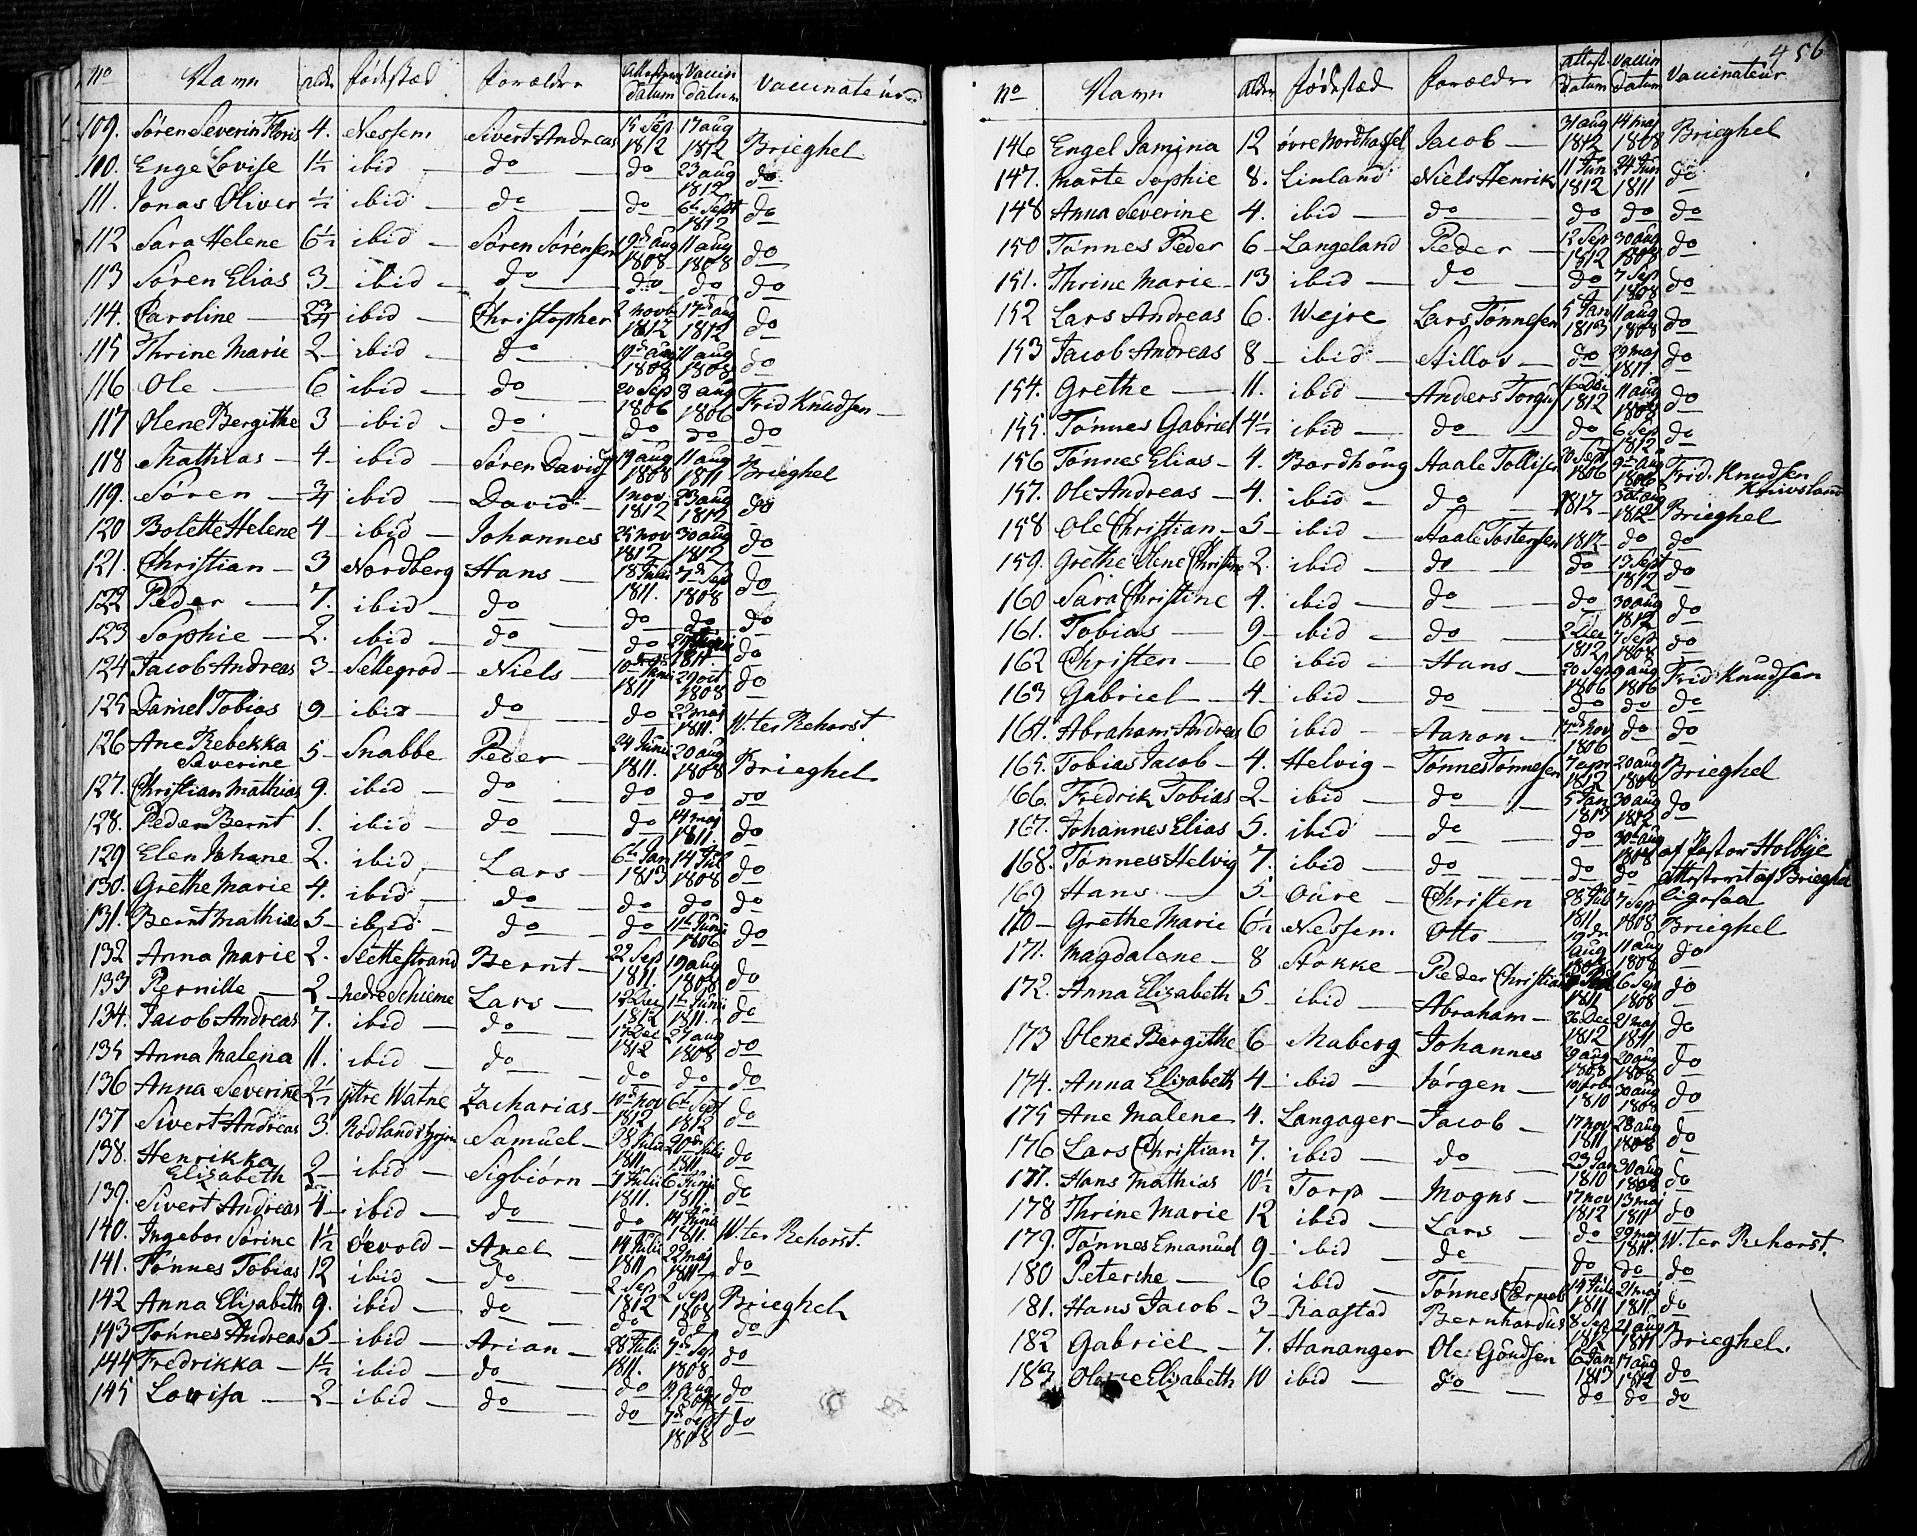 No Navn Alder Fødested Forældre Attestens datum Vaccin datum Vaccinateur
109. Søren Severin Floris 4. Nessem Sivert Andreas 15 Sep 1812 17 aug 1812 Brieghel
110. Enge Lovise 1½ ibid — do — do 23 aug 1812 do
111. Jonas Oliver ½ ibid — do — do 6te Sept 1812 do
112 Sara Helene 6½ ibid — Søren Sørensen 19de aug 1808 11 aug 1808 do
113 Søren Elias 3 — ibid — do — do do do
114. Caroline — 2¾ ibid — Christopher 2 novb 1812 17de aug 1812 do
115 Thrine Marie 2 — ibid — do — 19de aug 1808 11 aug 1808 do
116 Ole — 6 ibid — do — 20 Sep 1806 8 aug 1806 Frid Knudsen —
117 Olene Bergithe 3 — ibid — do — do do do
118 Mathias — 4 — ibid — Søren Davids 19 aug 1808 11 aug 1811 Brieghel
119. Søren — ¾ ibid — David — 1 nov 1812 23 aug 1812 do
120 Bolette Helene 4 — ibid — Johannes 25 nov 1812 30 aug 1812 do
121. Christian — 3 Nordberg Hans — 18 Julii 1811. 7de Sep 1808 do
122 Peder — 7. ibid — do — do do do
123 Sophie — 2. ibid — do — do 1811. do
124 Jacob Andreas 3 — Sellegrod — Niels — 1811 29 oct 1808 do
125 Daniel Tobias 9 — ibid — do — do 22 maj 1811. W. ter Rehorst
126 Ane Rebekka Severine 5 — Snabbe Peder — 24 Junii 1811. 20 aug 1808 Brieghel
127. Christian Mathias 9. ibid — do — do do do
128. Peder Bernt 1. ibid — do — do 14 maj 1811. do
129 Elen Johane 2. ibid — Lars — 6te Jan 1813 14 Jul 1808 do
130. Grethe Marie 4. ibid — do — do do do
131. Bernt Mathias 5 — ibid — do — do 11te Junii 1806 do
132 Anna Marie 2. Slettestrand Bernt — 22 Sep 1811 19 aug 1808 do
133 Pernille — 2 — nedre Schieme Lars — 12 Dec 1812 1te Junii 1811. do
134. Jacob Andreas 7. ibid — do — 17 Dec 1812 27 aug 1808 do
135 Anna Malena 11. ibid — do — do do do
136 Anna Severine 2½ yttre Watne Zacharias — 10de nov 1812 6te Sept 1812 do
137 Sivert Andreas 3. Rødland i Gyrin Samuel — 8 Julii 1811 20de Julii 1811 do
138. Henrikka Elizabeth 2 — ibid — Sigbiørn — 7 Julii 1811. 6 Junii 1811. do
139. Sivert Andreas 4 — ibid — do — do 14 Junii 1811. W. ter Rehorst
140. Ingebor Sørine 1½ Øevold — Axel — 14 Julii 1811 22 maj 1811 do
141. Tønnes Tobias 12 ibid — do — 2 Sep 1812 2 Sep 1808 Brieghel
142 Anna Elisabeth 9. ibid — do — do do do
143 Tønnes Andreas 5 — ibid — Arian — 28 Julii 1811. 7de Sep 1808 do
144 Fredrikka — 1½ ibid — do — do 19 aug do
145 Lovisa — 2 — ibid — do — do 7de Sept 1808 do
456
No Navn Alder Fødested Forældre Attest Datum Vaccin Datum Vaccinateur
146 Engel Jamina 12 øvre Nordhassel Jacob — 31 aug 1812 14 maj 1808 Brieghel
147. Marte Sophie 8. Linland Niels Henrik 11 Jun 1812 24 Jun 1811 do
148 Anna Severine 4. ibid — do — do do do
150 Tønnes Peder 6 — Langeland Peder — 12 Sep 1812 30 aug 1808 do
151. Thrine Marie — 13 ibid — do — do 7 Sep 1808 do
152 Lars Andreas 6. Wejre Lars Tønnesen 5 Jan 1813 11 aug 1808 do
153 Jacob Andreas 8 — ibid — Nillos — do 29 maj 1811. do
154. Grethe — 11. ibid — Anders Torgus 16 Dec 1812 11 aug 1808 do
155. Tønnes Gabriel 4½ ibid — do — do 6 Sep 1812 do
156 Tønnes Elias — 4. Bordhoug Aale Tollisen 20 Sept 1806 9de aug 1806 Frid. Knudsen Knivsland
157. Ole Andreas — 4. ibid — do — 1812 30 aug 1812 Brieghel
158 Ole Christian — 5 — ibid — Aale Tostensen 1812 do do
159. Grethe Olene Christine 2. ibid — do — do 13 Sept 1812 do
160 Sara Christine 4. ibid — do — do 30 aug 1812 do
161. Tobias — 9 — ibid — do — 2 Dec 1812 7 Sept 1808 do
162 Christen — 6 ibid — Hans — 20 Sep 1806 9 aug 1806 Frid Knudsen
163 Gabriel — 4 — ibid — do — do do do
164. Abraham Andreas 6 ibid — Aanon — 17de nov 1806 do do
165. Tobias Jacob — 4. Helvig — Tønnes Tønnesen 7 apr 1812 20 aug 1808 Brieghel
166. Fredrik Tobias 2 — ibid — do — 5 Jan 1813 30 aug 1812 do
167. Johannes Elias 5. ibid — do — do 30 aug 1808 af Pastor Holbye
168. Tønnes Helvig 7. ibid — do — do do attesteret af Brieghel
169 Hans — 5 Oure — Christen 28 Jul 1811 7 Sept 1808 ligesaa
170 — Grethe Marie 6½ Nessem Otto — 19de aug 1808 11 aug 1808 Brieghel
171. Magdalene — 8 Stokke — Peder Christian 1811 6 Sep 1808 do
172. Anna Elizabeth 5 — ibid — Abraham — 26 Dec 1812 21 maj 1811 do
173 Olene Bergithe 6 Maberg Johannes 29 aug 1808 20 aug 1808 do
174. Anna Elizabeth 4 — ibid — Jørgen — 1810 30 aug 1808 do
175 Ane Malene 4. Langager — Jacob — 17 nov 1811 28 aug 1808 do
176 Lars Christian 7. ibid — do — 23 Jan 1810 30 aug 1808 do
177. Hans Mathias 10½ Torp — Mogns — 17 nov 1812 13 maj 1811 do
178 Thrine Marie 12 ibid — Lars — do 29 maj 1811. do
179. Tønnes Emanuel 9 — ibid — do — do do W. ter Rehorst.
180 Peterche — 6 ibid — Tønnes 14 Julii 1811 21 maj 1811. do
181. Hans Jacob — 3 — Raastad Bernhardus 8 Sep 1812 21 aug 1811 do
182 Gabriel — 7. Hananger Ole Gundsen 6 Jan 1813 17 aug 1812 Brieghel
183 Olene Elizabeth 10 ibid — do — do do do
do